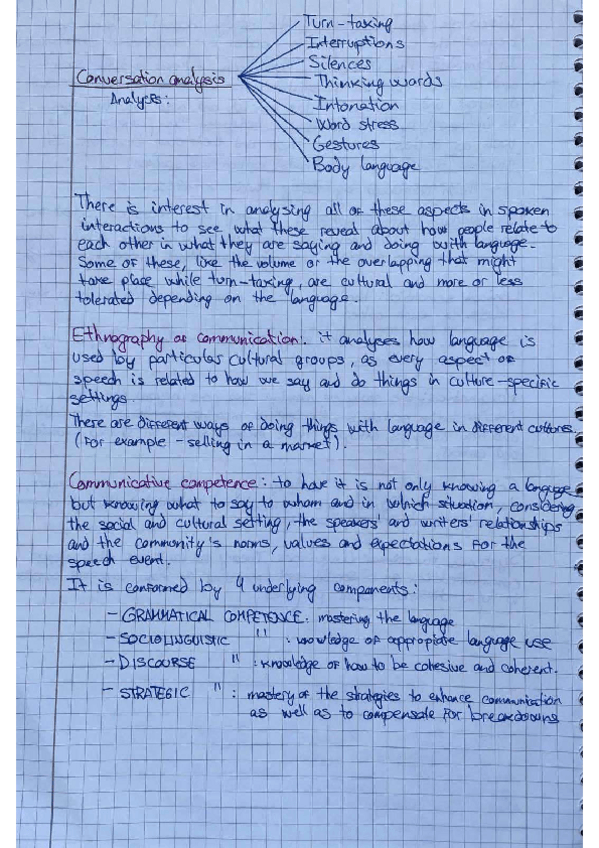 Turn-taking
Interruptions
Silences
Conversation analysis
Thinking words
Analyses:
Intonation
Word stress
Gestures
Body language
There is interest in analysing all of these aspects in spoken
interactions to see what these reveal about how people relate to
each other in what they are saying and doing with language.
Some of these, like the volume or the overlapping that might
take place while turn-taking, are cultural and more or less
tolerated depending on the language.
Ethnography of communication: it analyses how language is
used by particular cultural groups, as every aspect of
speech is related to how we say and do things in culture-specific
settings
There are different ways of doing things with language in different cultures.
(For example - selling in a market).
Communicative competence: to have it is not only knowing a language
but knowing what to say to whom and in which situation, considering
the social and cultural setting, the speakers' and writers' relationships
and the community's norms, values and expectations for the
speech event.
It is conformed by 4 underlying components:
- GRAMMATICAL COMPETENCE: mastering the language
- SOCIOLINGUISTIC " : knowledge of appropiate language use
- DISCOURSE " : knowledge of how to be cohesive and coherent.
- STRATEGIC " : mastery of the strategies to enhance communication
as well as to compensate for breakdowns